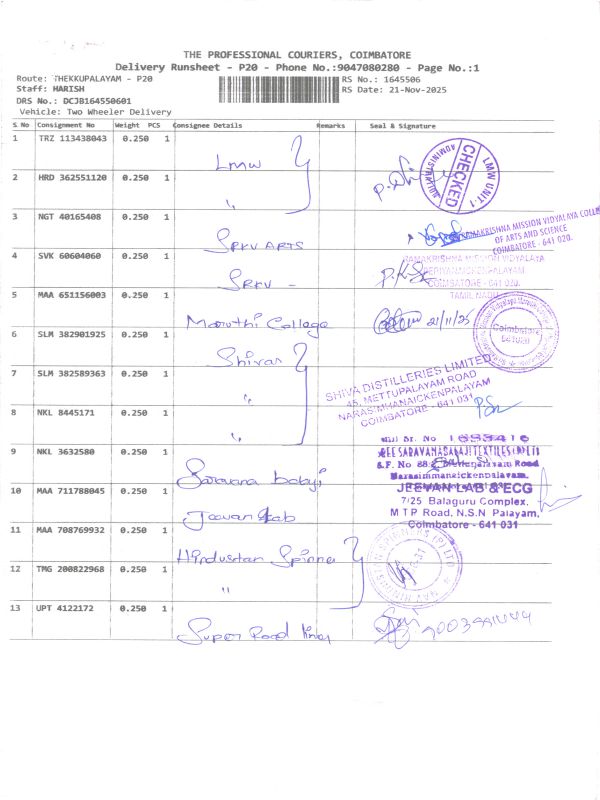 THE PROFESSIONAL COURIERS, COIMBATORE
Delivery Runsheet - P20 - Phone No.:9047080280 - Page No.:1
Route: THEKKUPALAYAM - P20
RS No.: 1645506
Staff: HARISH
RS Date: 21-Nov-2025
DRS No.: DCJB164550601
Vehicle: Two Wheeler Delivery
S No Consignment No Weight PCS Consignee Details Remarks Seal & Signature
1 TRZ 113438043 0.250 1 LMW
CHECKED
LMW UNIT-1
2 HRD 362551120 0.250 1 "
3 NGT 40165408 0.250 1 SRKV ARTS
RAMAKRISHNA MISSION VIDYALAYA COLLE
OF ARTS AND SCIENCE
COIMBATORE - 641 020.
4 SVK 60604060 0.250 1 SRKV -
RAMAKRISHNA MISSION VIDYALAYA
PERIYANAICKENPALAYAM,
COIMBATORE - 641 020.
TAMIL NADU
5 MAA 651156003 0.250 1 Maruthi College
21/11/25
Coimbatore
6 SLM 382901925 0.250 1 Shivas
7 SLM 382589363 0.250 1 "
SHIVA DISTILLERIES LIMITED
45, METTUPALAYAM ROAD
NARASIMHANAICKENPALAYAM
COIMBATORE - 641 031
8 NKL 8445171 0.250 1 "
9 NKL 3632580 0.250 1 Saravana balaji
Narasimmanaickenpalayam
10 MAA 711788045 0.250 1 Jeevan Lab
JEEVAN LAB & ECG
7/25 Balaguru Complex,
M T P Road, N.S.N Palayam,
Coimbatore - 641 031
11 MAA 708769932 0.250 1 Hindustan Spinne
12 TMG 200822968 0.250 1 "
13 UPT 4122172 0.250 1 Super Road lines